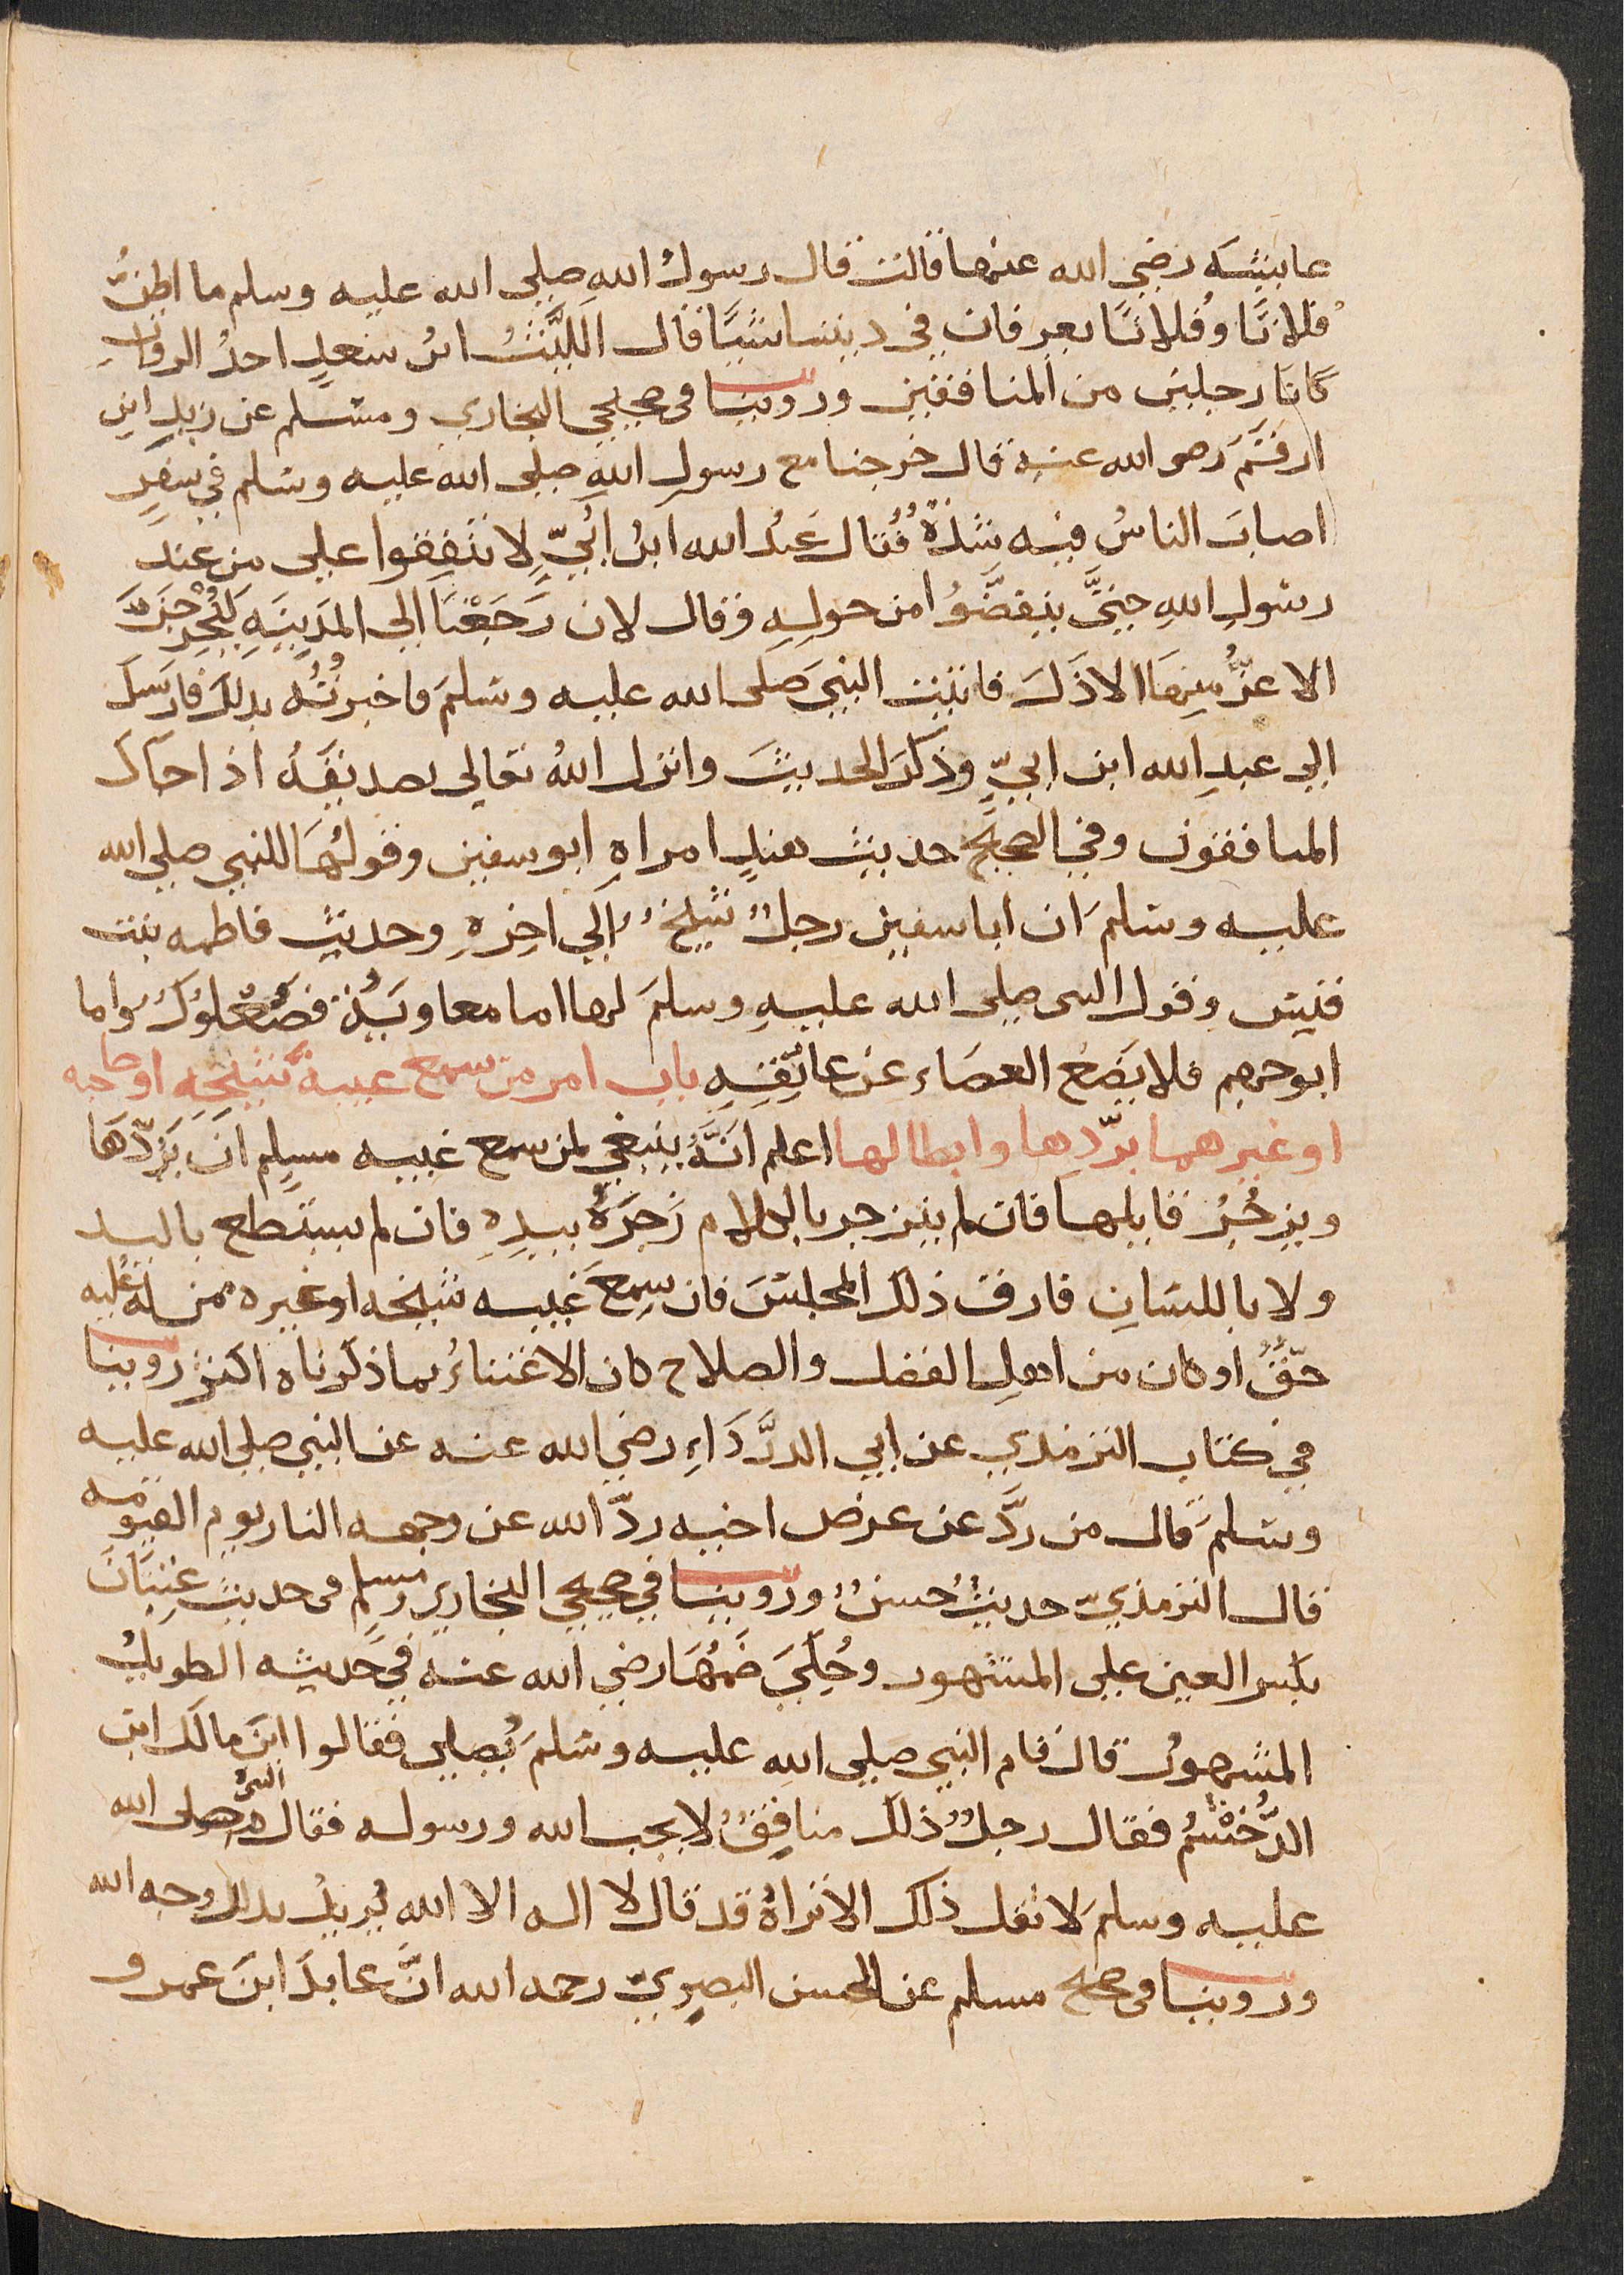 عايشه رضي الله عنها قالت قال رسولُ اللهِ صلي الله عليه وسلم ما اظنُّ
فلانًا وفُلانًا يعرفان في ديننا شيًا قال اللَّيثُ ابنُ سعدٍ احدُ الرواةِ
كانا رجلين من المنافقين وروينا في صحيحي البخاري ومسلم عن زيدِ ابنِ
ارقَم رضي الله عنه قال خرجنا مع رسولِ اللهِ صلي الله عليه وسلم في سفرٍ
اصابَ الناسُ فيه شدَّةٌ فقال عبدُ الله ابنُ اُبَيٍّ لا تنفقوا علي من عند
رسولِ اللهِ حتيَّ ينفضُّوا من حولِهِ وقال لان رَجَعْنا الي المدينهِ لَيُخْرجَنَّ
الاعزُّ مِنهَا الاذَلَّ فاتيت النبيَ صَلي الله عليه وسلمَ فاخبرتُهُ بدلك فارسَلَ
الي عبدِ الله ابن ابيٍّ وذَكَرَ الحديثَ وانزل اللهُ تعالي تصديقَهُ اذا جاك
المنافقون وفي الصحيح حديث هندٍ امراهِ ابو سفين وقولُهَا للنبي صلي الله
عليه وسلمَ ان ابا سفين رجلٌ شحيحٌ الي اخرهِ وحديث فاطمه بنت
قيس وقول النبي صلي الله عليهِ وسلمَ لها اما معاويَةُ فصُعْلوكٌ واما
ابو جهم فلا يَضعُ العصَاء عن عاتِقِهِ باب امر من سمع غيبة شيخه او صاحبه
او غيرهما بردّها وابطالها اعلم انَّهُ ينبغي لمن سمع غيبه مسلِم انَ يَرُدّهَا
ويزجُرُ قايلها فان لم ينزجر بالكلام زَجَرَهُ بيدِهِ فان لم يستطع باليد
ولا باللسانِ فارق ذلك المجلسَ فان سِمعَ غيبه شيخه او غيره ممن له عليه
حقٌّ او كان من اهلِ الفضل والصلاح كان الاعتناءُ بما ذكرناه اكثر روينا
في كتاب الترمذي عن ابي الدرَّدَاءِ رضي الله عنه عن النبي صلي الله عليه
وسلمَ قال من ردَّ عن عرض اخيه ردّ الله عن وجهه النار يوم القيومه
قال الترمذيّ حديثٌ حسنٌ وروينا في صحيحي البخاري ومسلم في حديث عِتبَانَ
بكسر العين علي المشهور وحُكيَ ضَمُّهَا رضي الله عنه في حديثه الطويل
المشهور قال قام النبي صلي الله عليه وسلمَ يُصلي فقالوا اينَ مالك ابن
الدُّخشُم فقال رجلٌ ذلك منافِقٌ لا يحب الله ورسوله فقال النبي صلي الله
عليه وسلمَ لا تقل ذلك الا تراهُ قد قال لا اله الا الله يُريدُ بدلك وجه الله
وروينا في صحيح مسلم عن الحسن البصرِيّ رحمه الله انَّ عايدَ ابنَ عمرو